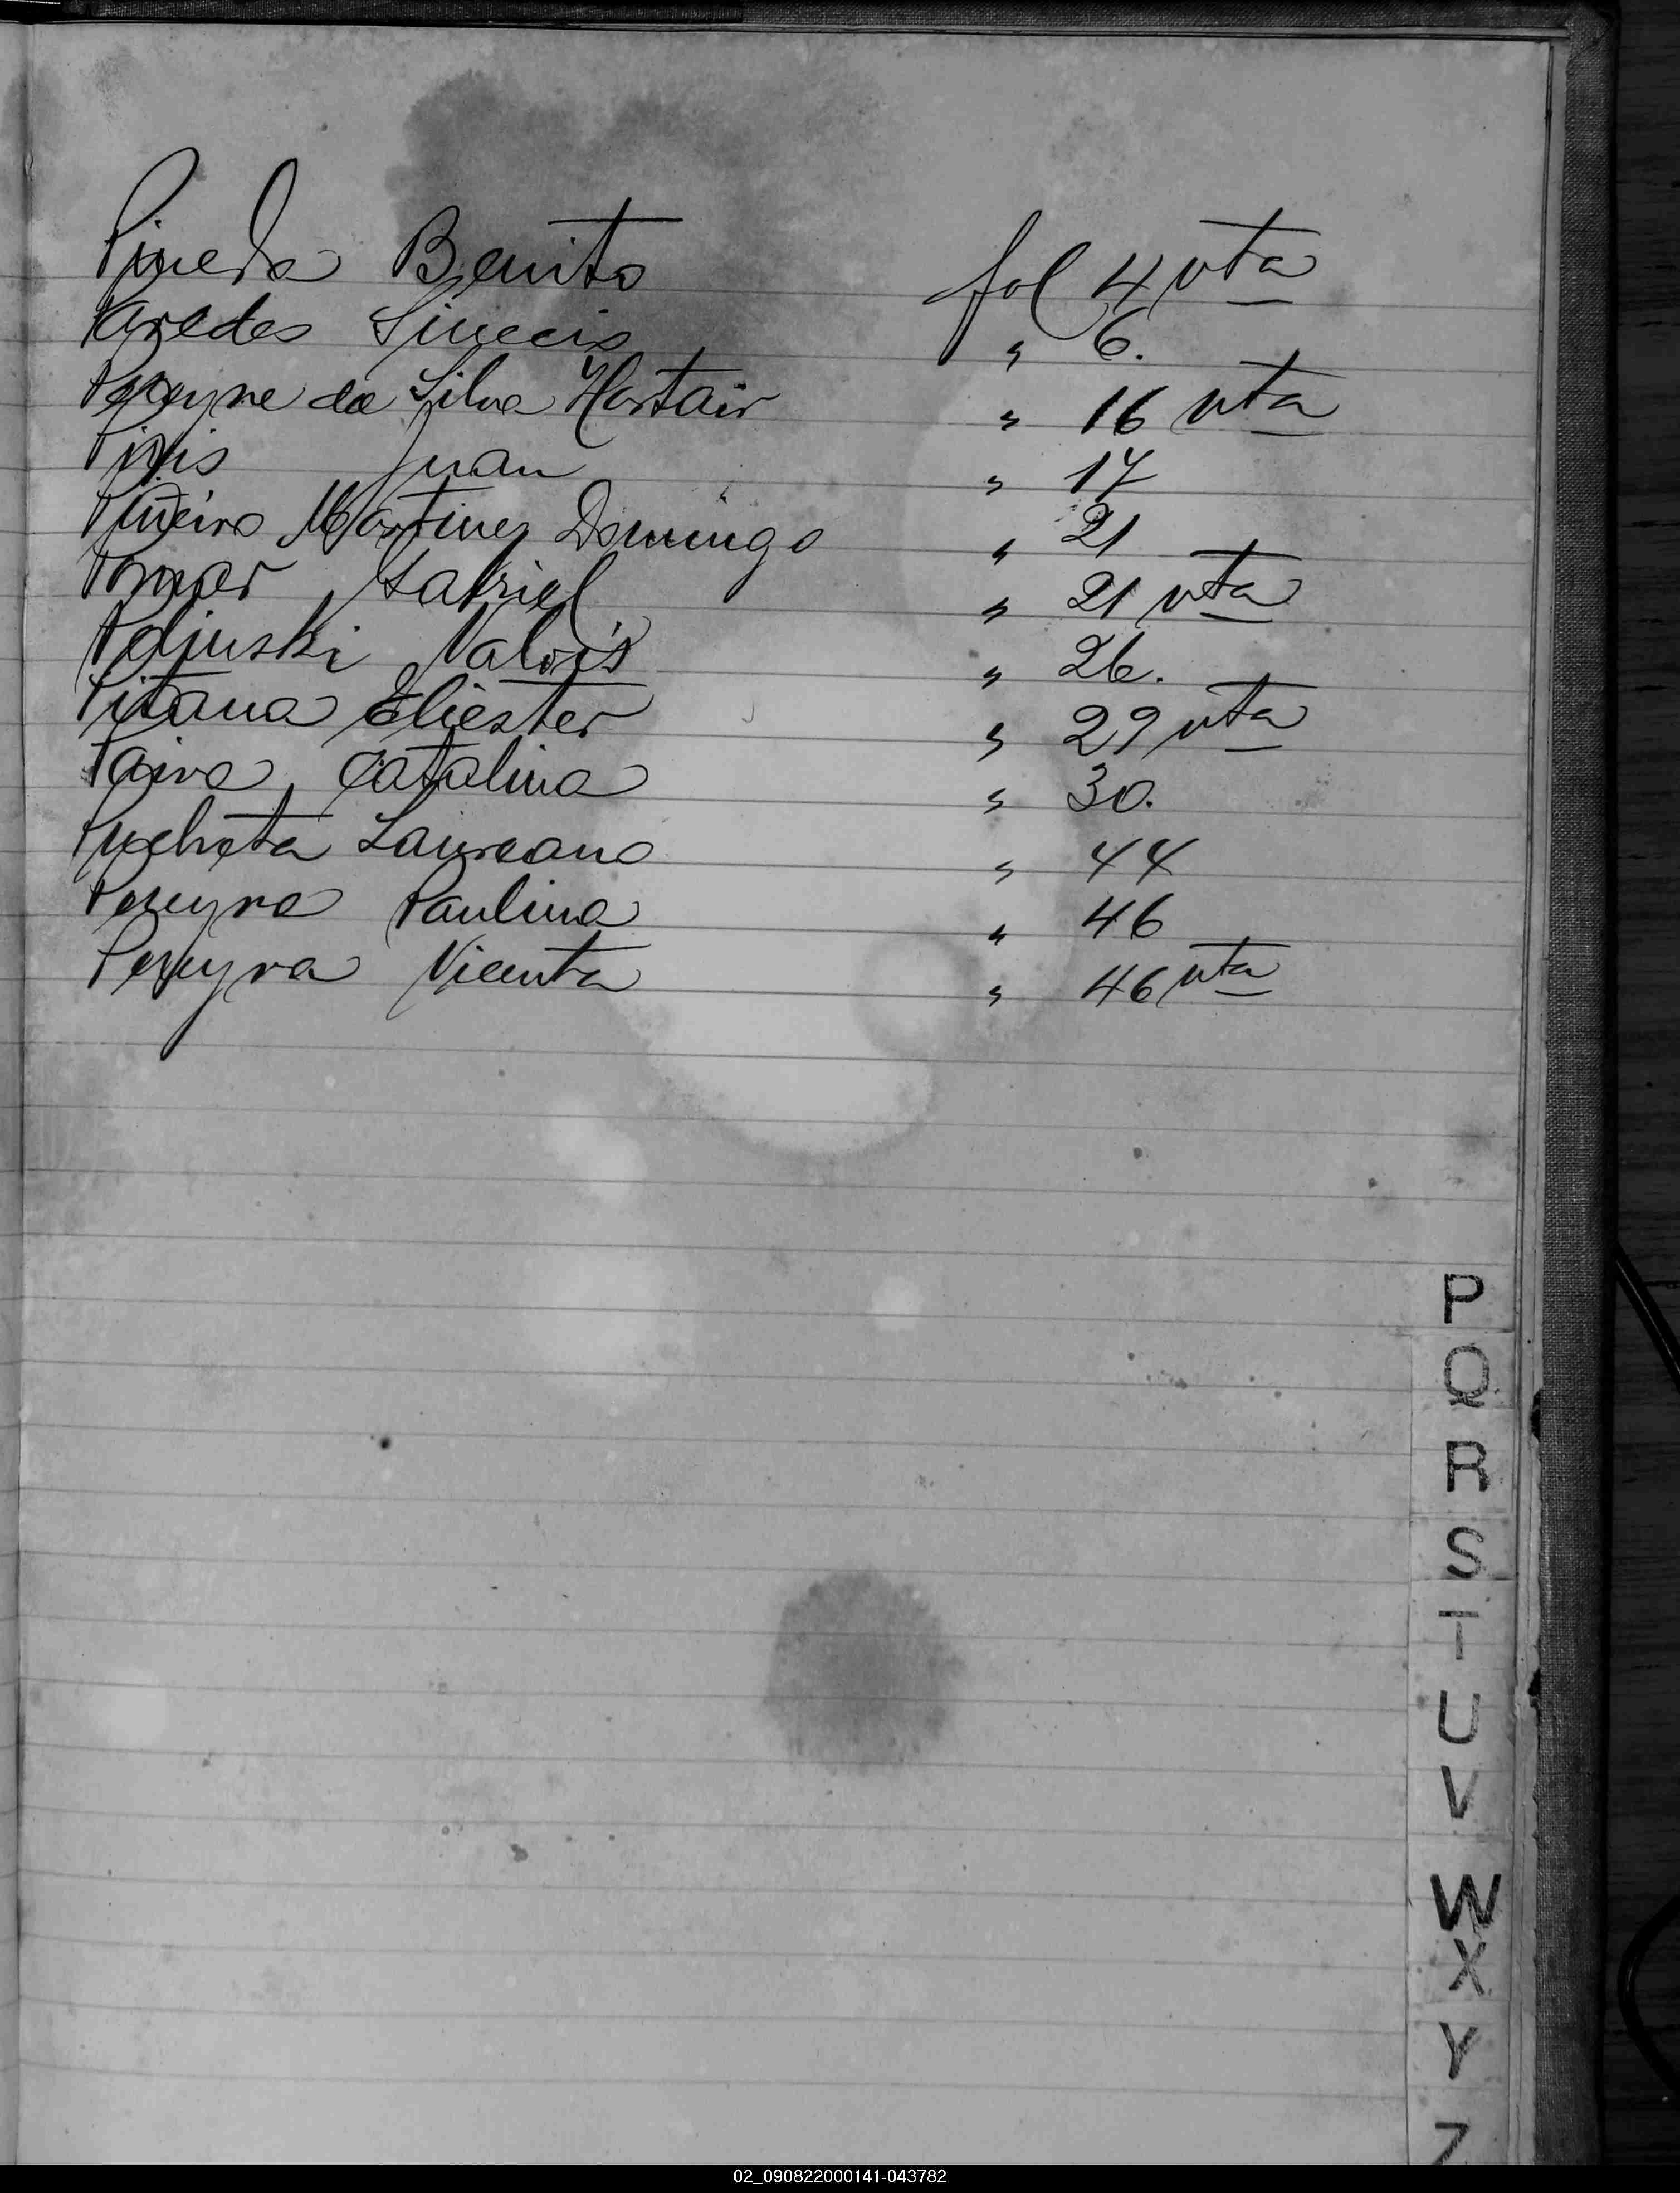 Pineda Benito fol 4 vta
Paredes Sinecio " 6.
Pereyra da Silva " 16 vta
Piris Juan " 17
Piñeiro Martinez Domingo " 21
Pomar Gabriel " 21 vta
" 26.
Pitana Eliester " 29 vta
Paiva Catalina " 30.
Pucheta Laureano " 44
Pereyra Paulina " 46
Pereyra Vicenta " 46 vta
P
Q
R
S
T
U
V
W
X
Y
Z
02_090822000141-043782